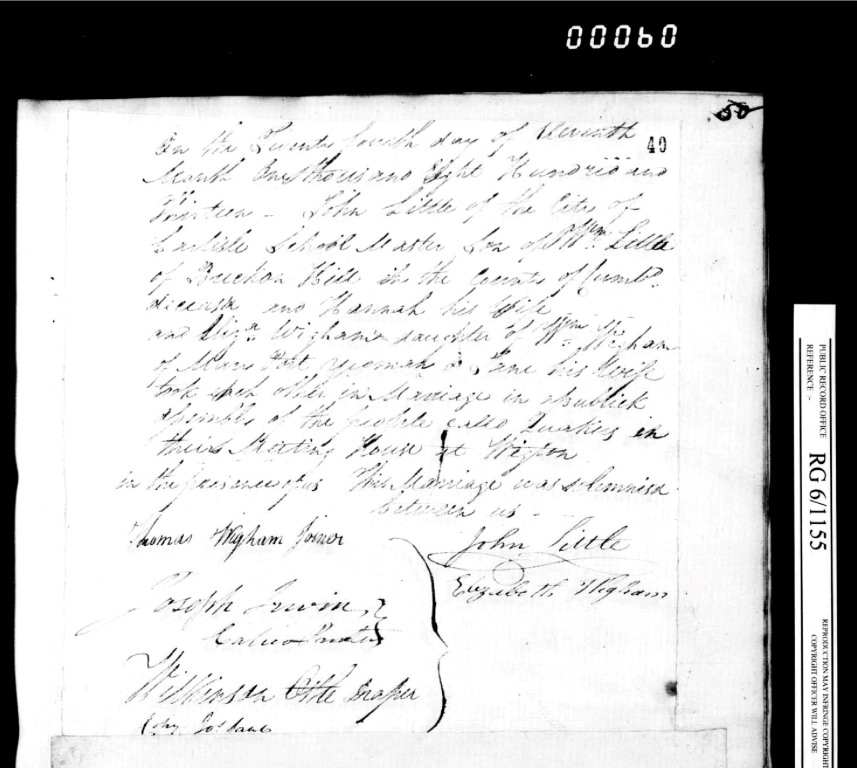 00060
50
40
On the Twenty fourth day of Eleventh
Month One thousand Eight Hundred and
Thirteen - John Little of the City of
Carlisle School Master Son of Wm. Little
of Hill in the County of Cumbd.
deceased and Hannah his Wife
and Eliza. Wigham daughter of Wm. Wigham
of Mary Port yeoman & Jane his Wife
took each other in Marriage in a publick
Assembly of the people called Quakers in
their Meeting House at Wigton
in the presence of us This Marriage was solemnised
between us -
Thomas Wigham Joiner
John Little
Elizabeth Wigham
Joseph Irwin
Calico Printer
Wilkinson Draper
PUBLIC RECORD OFFICE
REFERENCE :-
RG 6/1155
REPRODUCTION MAY INFRINGE COPYRIGHT
COPYRIGHT OFFICER WILL ADVISE